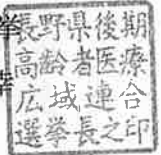 長野県後期
高齢者医療
広域連合
選挙長之印